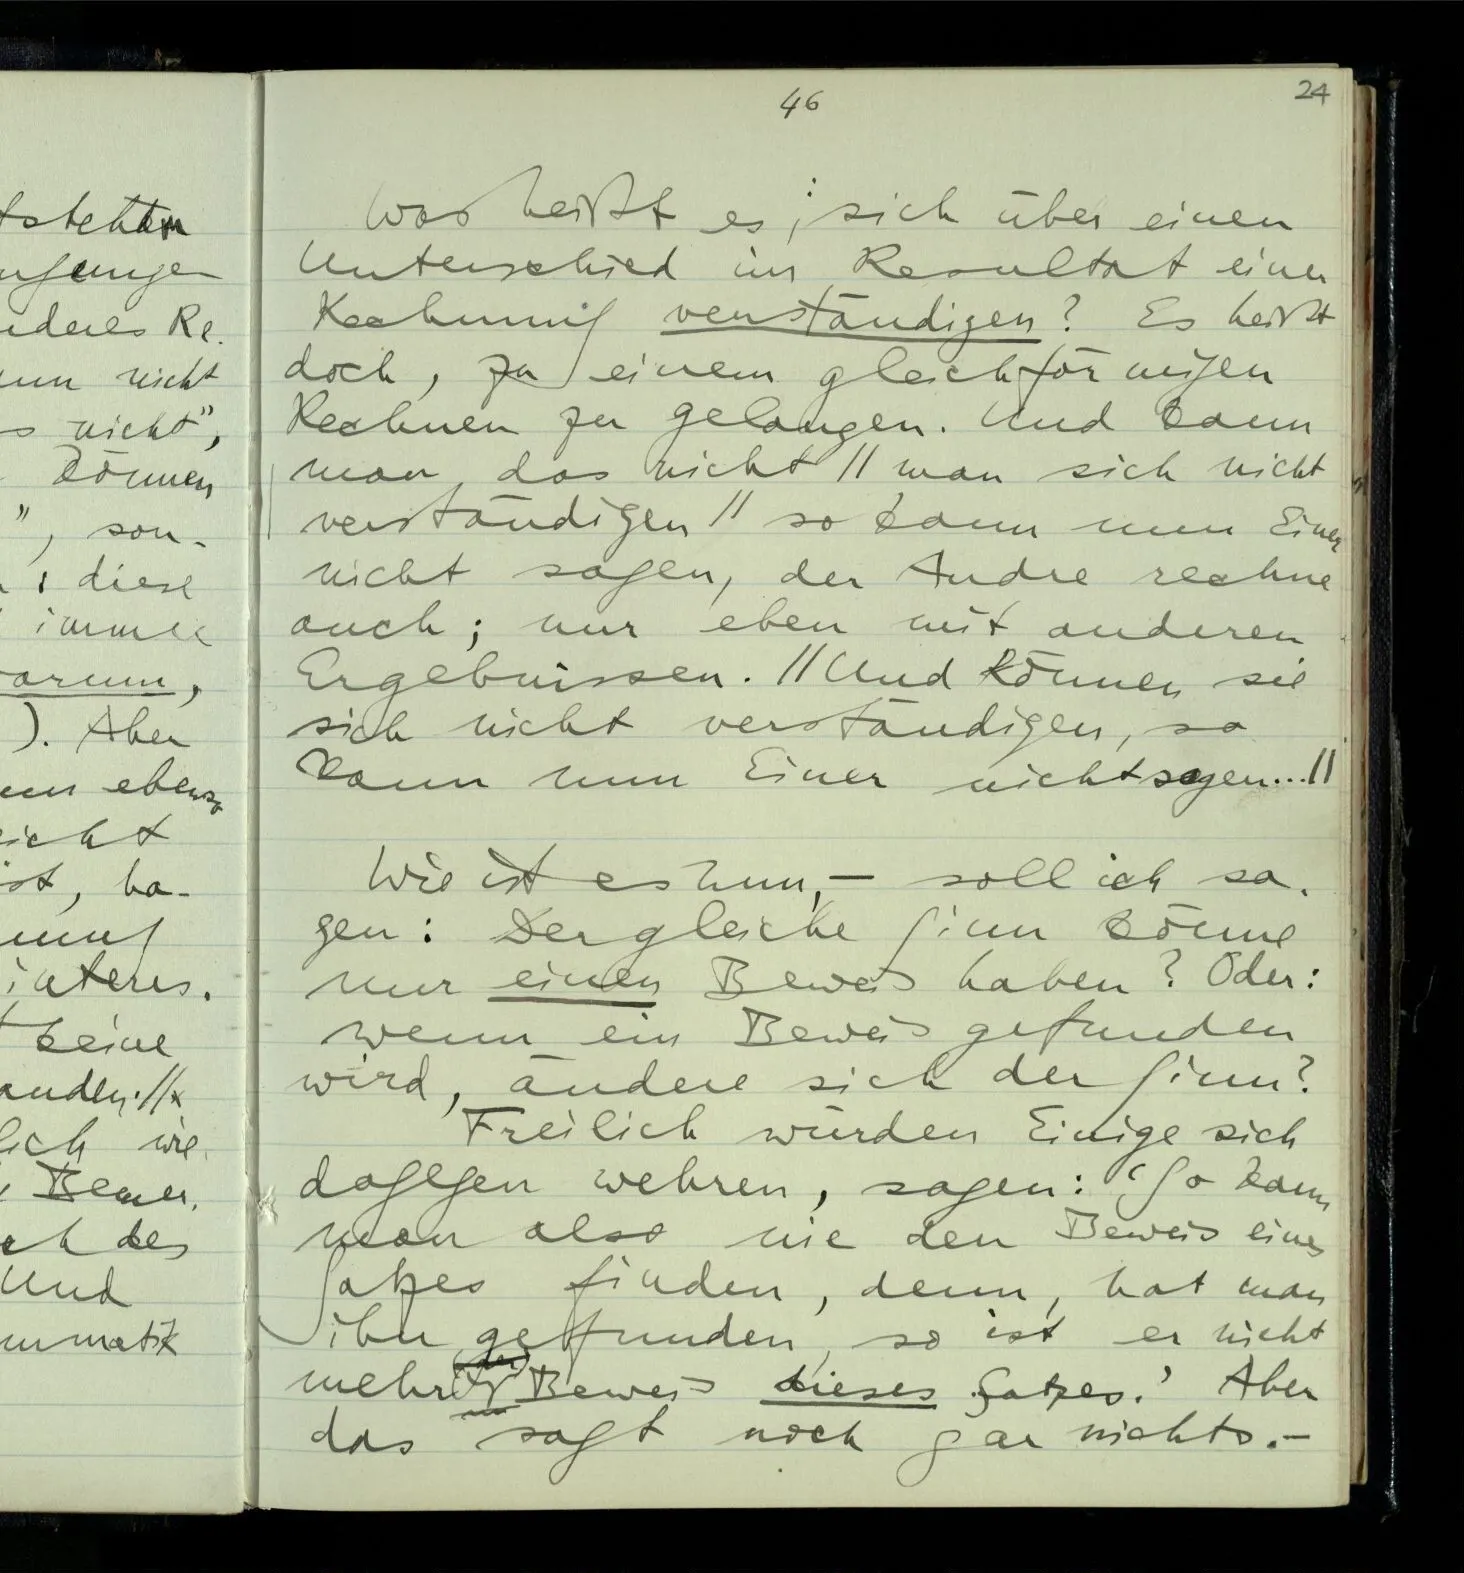 46
24
Was heißt es, sich über einen
Unterschied im Resultat einer
Rechnung verständigen? Es heißt
doch, zu einem gleichförmigen
Rechnen zu gelangen. Und kann
man das nicht // man sich nicht
verständigen // so kann nun Einer
nicht sagen, der Andre rechne
auch; nur eben mit anderen
Ergebnissen. // Und können sie
sich nicht verständigen, so
kann nun Einer nicht sagen...//
Wie ist es nun, – soll ich sa-
gen: Der gleiche Sinn könne
nur einen Beweis haben? Oder:
wenn ein Beweis gefunden
wird, ändere sich der Sinn?
Freilich würden Einige sich
dagegen wehren, sagen: ‘So kann
man also nie den Beweis eines
Satzes finden, denn, hat man
ihn gefunden, so ist er nicht
mehr der Beweis dieses Satzes.’ Aber
das sagt noch gar nichts. –
anderes Re-
nicht
nicht”,
können
”, son-
diese
immer
warum,
). Aber
ebenso
nicht
ist, ha-
interes-
keine
lich wie
Bemer-
des
Und